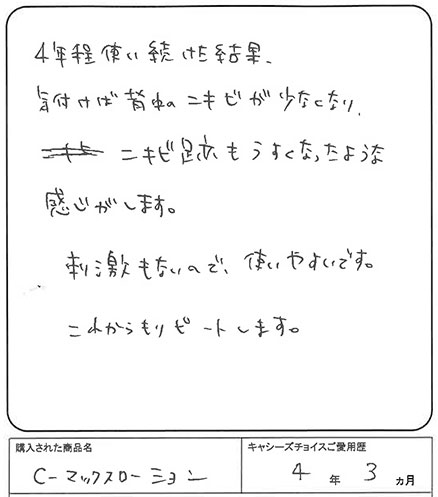 4年程使い続けた結果、
気付けば背中のニキビが少なくなり、
ニキビ跡もうすくなったような
感じがします。
刺激もないので、使いやすいです。
これからもリピートします。
購入された商品名
キャシーズチョイスご愛用歴
C-マックスローション
4年3ヵ月